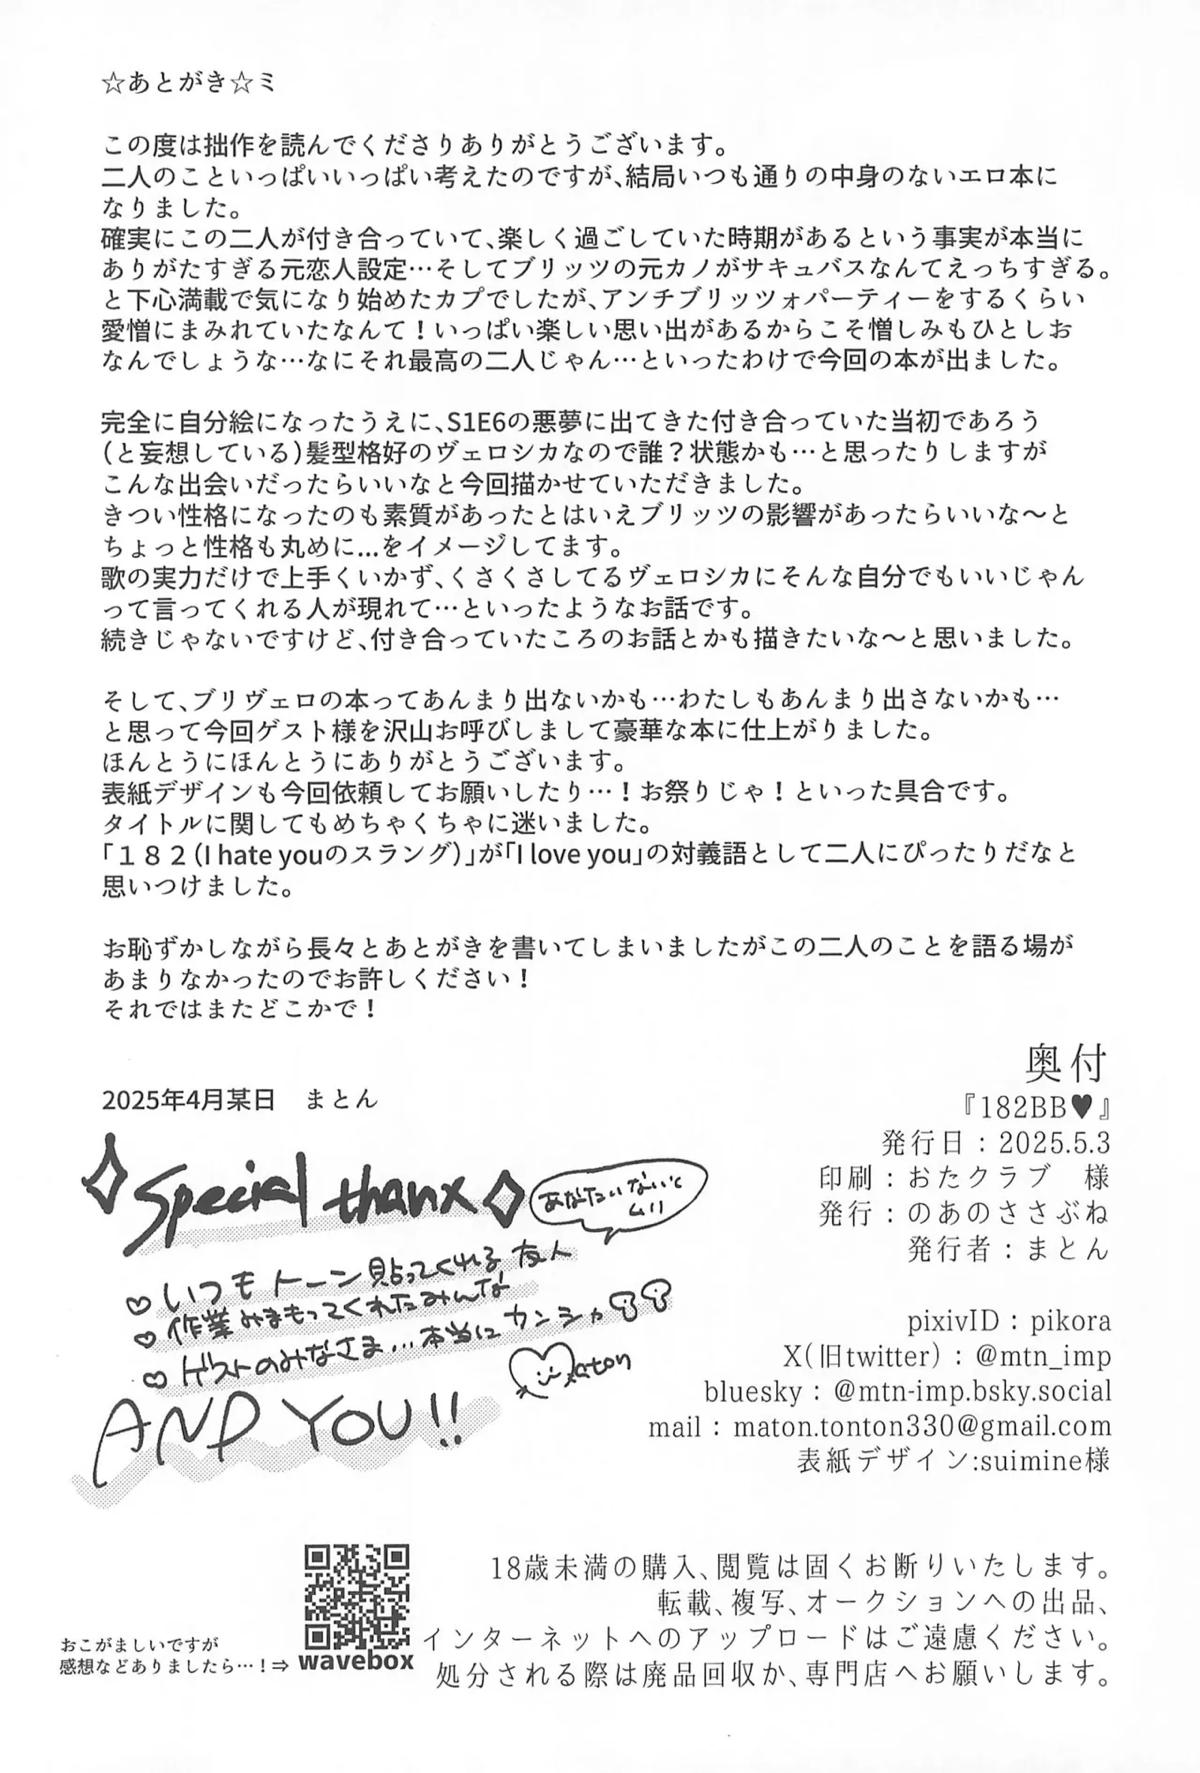 ☆あとがき☆ミ
この度は拙作を読んでくださりありがとうございます。
二人のこといっぱいいっぱい考えたのですが、結局いつも通りの中身のないエロ本に
なりました。
確実にこの二人が付き合っていて、楽しく過ごしていた時期があるという事実が本当に
ありがたすぎる元恋人設定…そしてブリッツの元カノがサキュバスなんてえっちすぎる。
と下心満載で気になり始めたカプでしたが、アンチブリッツォパーティーをするくらい
愛憎にまみれていたなんて！いっぱい楽しい思い出があるからこそ憎しみもひとしお
なんでしょうな…なにそれ最高の二人じゃん…といったわけで今回の本が出ました。
完全に自分絵になったうえに、S1E6の悪夢に出てきた付き合っていた当初であろう
（と妄想している）髪型格好のヴェロシカなので誰？状態かも…と思ったりしますが
こんな出会いだったらいいなと今回描かせていただきました。
きつい性格になったのも素質があったとはいえブリッツの影響があったらいいな～と
ちょっと性格も丸めに...をイメージしてます。
歌の実力だけで上手くいかず、くさくさしてるヴェロシカにそんな自分でもいいじゃん
って言ってくれる人が現れて…といったようなお話です。
続きじゃないですけど、付き合っていたころのお話とかも描きたいな～と思いました。
そして、ブリヴェロの本ってあんまり出ないかも…わたしもあんまり出さないかも…
と思って今回ゲスト様を沢山お呼びしまして豪華な本に仕上がりました。
ほんとうにほんとうにありがとうございます。
表紙デザインも今回依頼してお願いしたり…！お祭りじゃ！といった具合です。
タイトルに関してもめちゃくちゃに迷いました。
「１８２（I hate youのスラング）」が「I love you」の対義語として二人にぴったりだなと
思いつけました。
お恥ずかしながら長々とあとがきを書いてしまいましたがこの二人のことを語る場が
あまりなかったのでお許しください！
それではまたどこかで！
2025年4月某日　まとん
Special thanx
あなたいないと
ムリ
♡いつもトーン貼ってくれる友人
♡作業みまもってくれたみんな
♡ゲストのみなさま...本当にカンシャ
Maton
AND YOU!!
奥付
『182BB♥』
発行日：2025.5.3
印刷：おたクラブ　様
発行：のあのささぶね
発行者：まとん
pixivID：pikora
X(旧twitter)：@mtn_imp
bluesky：@mtn-imp.bsky.social
mail：maton.tonton330@gmail.com
表紙デザイン:suimine様
おこがましいですが
感想などありましたら…！⇒
wavebox
18歳未満の購入、閲覧は固くお断りいたします。
転載、複写、オークションへの出品、
インターネットへのアップロードはご遠慮ください。
処分される際は廃品回収か、専門店へお願いします。